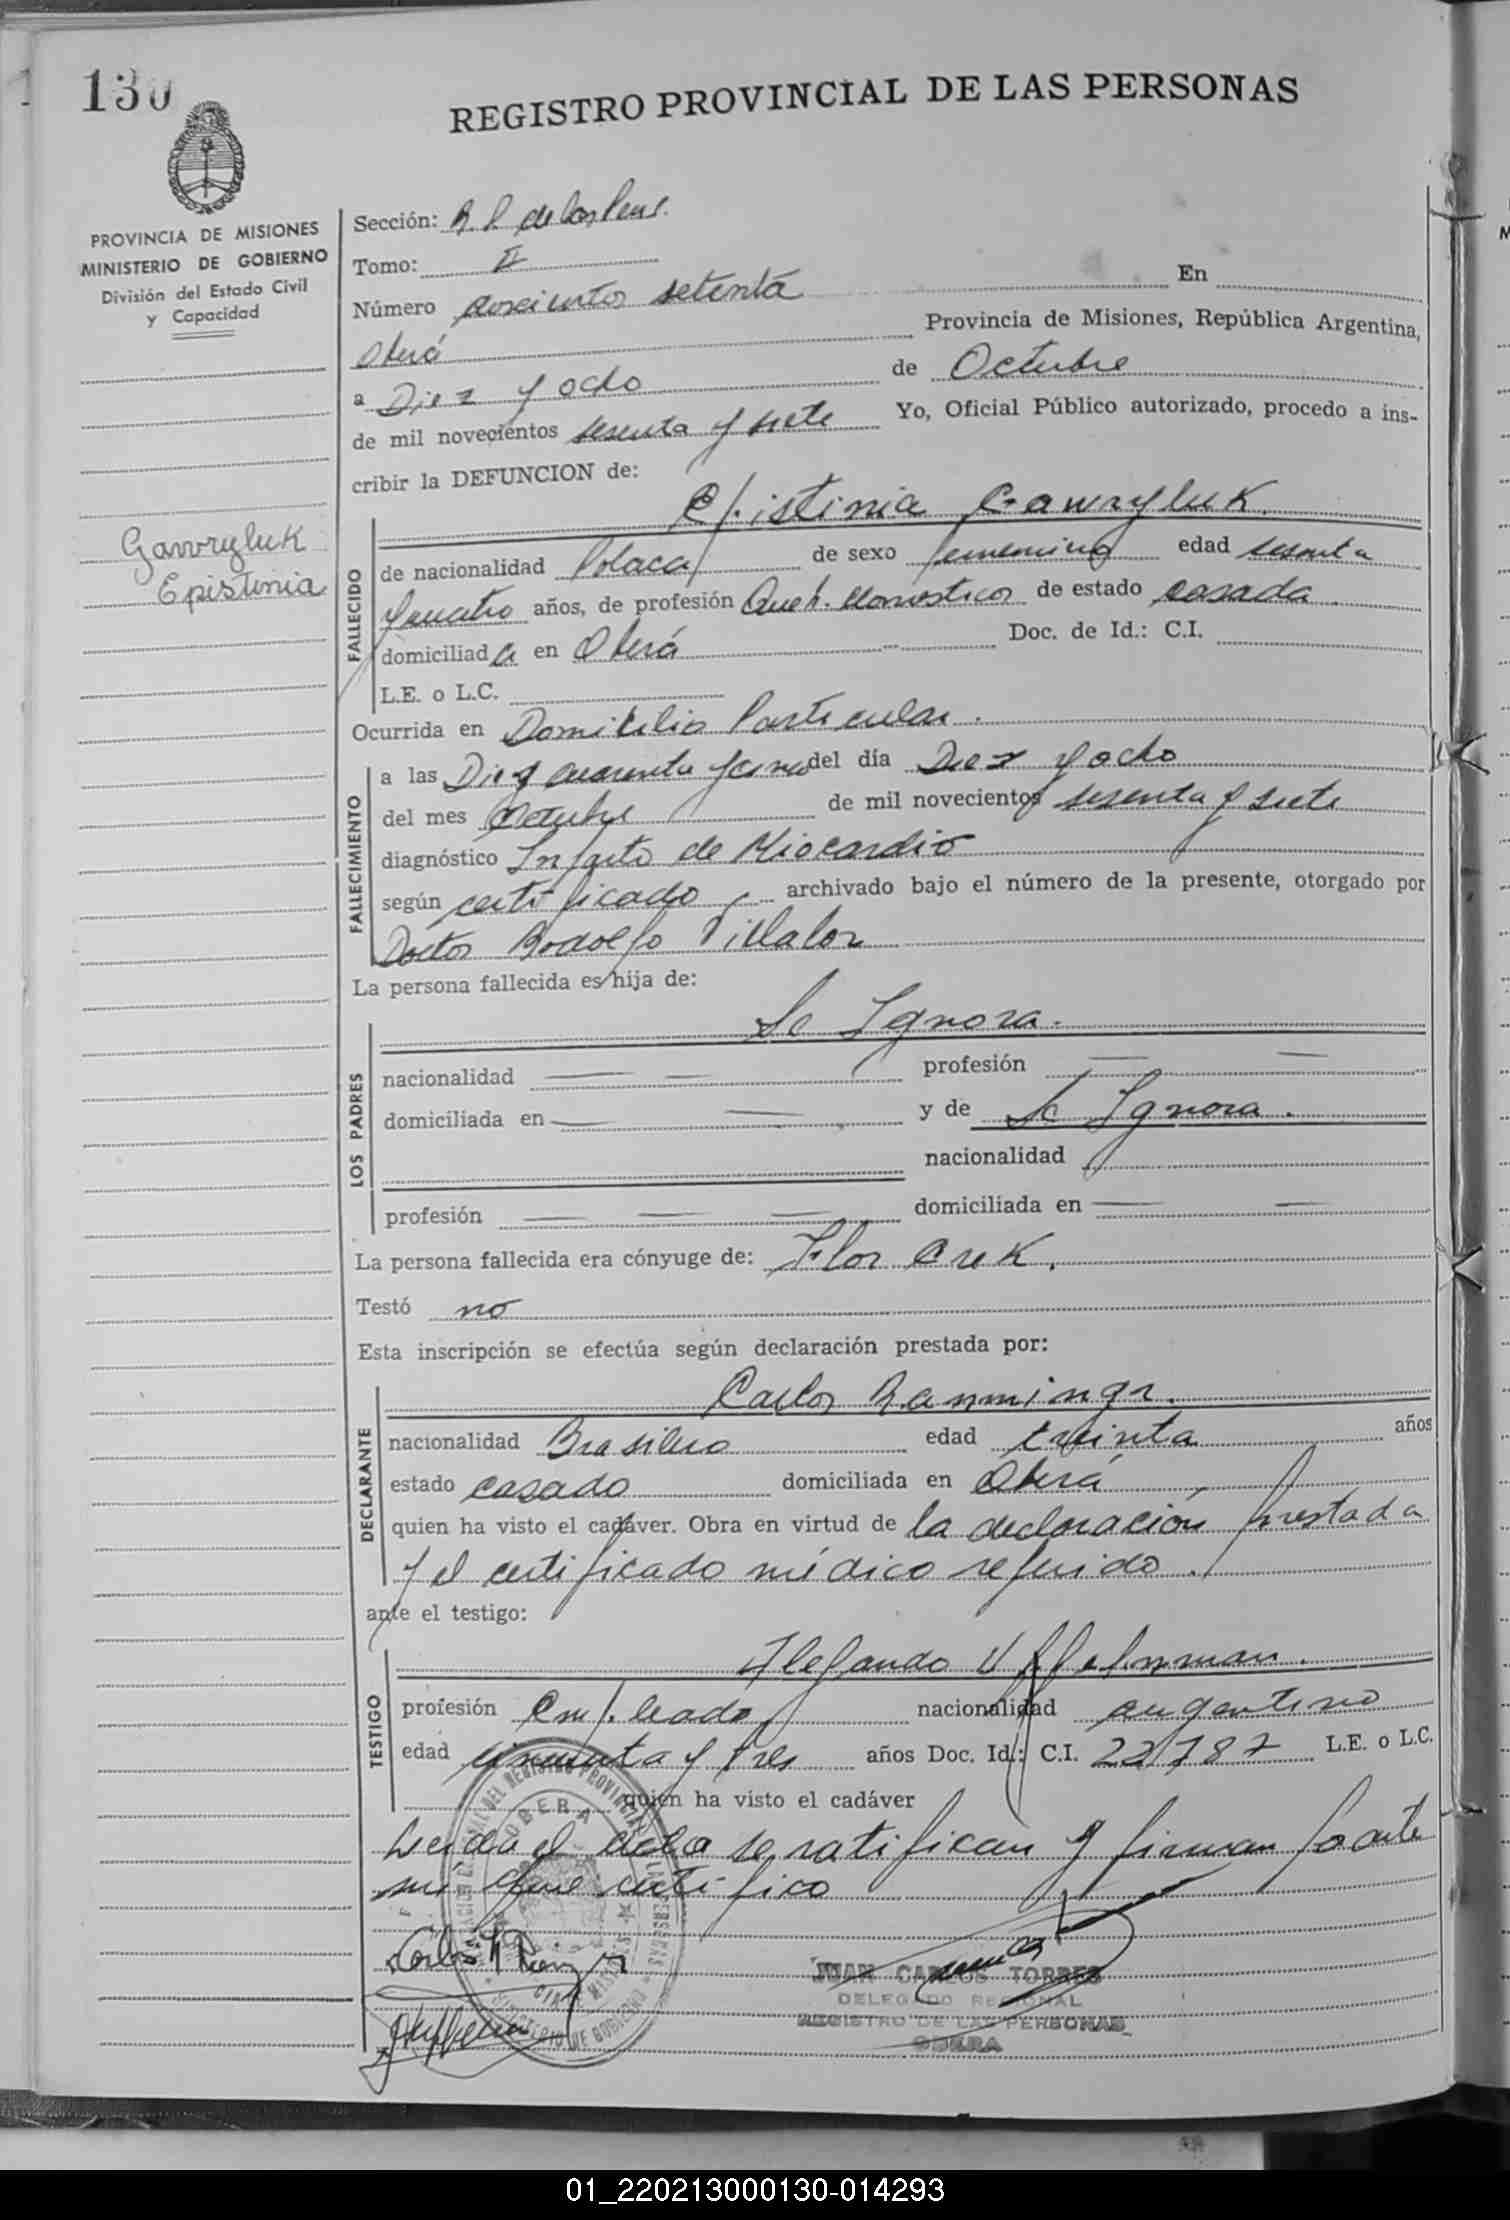 130
REGISTRO PROVINCIAL DE LAS PERSONAS
PROVINCIA DE MISIONES
MINISTERIO DE GOBIERNO
División del Estado Civil
y Capacidad
Gawryluk
Epistinia
Sección: R. P. de las Pers.
Tomo: II
Número doscientos setenta En
Oberá Provincia de Misiones, República Argentina,
a Diez y ocho de Octubre
de mil novecientos sesenta y siete Yo, Oficial Público autorizado, procedo a ins-
cribir la DEFUNCION de:
Epistinia Gawryluk.
FALLECIDO
de nacionalidad Polaca de sexo femenino edad sesenta
y cuatro años, de profesión Queh. domesticos de estado casada
domiciliada en Oberá Doc. de Id.: C.I.
L.E. o L.C.
Ocurrida en Domicilio Particular.
FALLECIMIENTO
a las Diez cuarenta y cinco del día Diez y ocho
del mes Octubre de mil novecientos sesenta y siete
diagnóstico Infarto de Miocardio
según certificado archivado bajo el número de la presente, otorgado por
Doctor Rodolfo
La persona fallecida es hija de:
LOS PADRES
Se Ignora.
nacionalidad — — profesión — —
domiciliada en — — y de Se Ignora.
nacionalidad
profesión — — — domiciliada en — —
La persona fallecida era cónyuge de: Flor
Testó no
Esta inscripción se efectúa según declaración prestada por:
DECLARANTE
Carlos
nacionalidad Brasilero edad treinta años
estado casado domiciliada en Oberá
quien ha visto el cadáver. Obra en virtud de la declaración prestada
y el certificado médico referido.
ante el testigo:
TESTIGO
profesión Empleado nacionalidad argentino
edad cincuenta y tres años Doc. Id.: C.I. 22.787 L.E. o L.C.
quien ha visto el cadáver
Leida el acta se ratifican y firman por ante
mí que certifico
OBERA
JUAN CARLOS TORRES
DELEGADO REGIONAL
REGISTRO DE LAS PERSONAS
OBERA
01_220213000130-014293